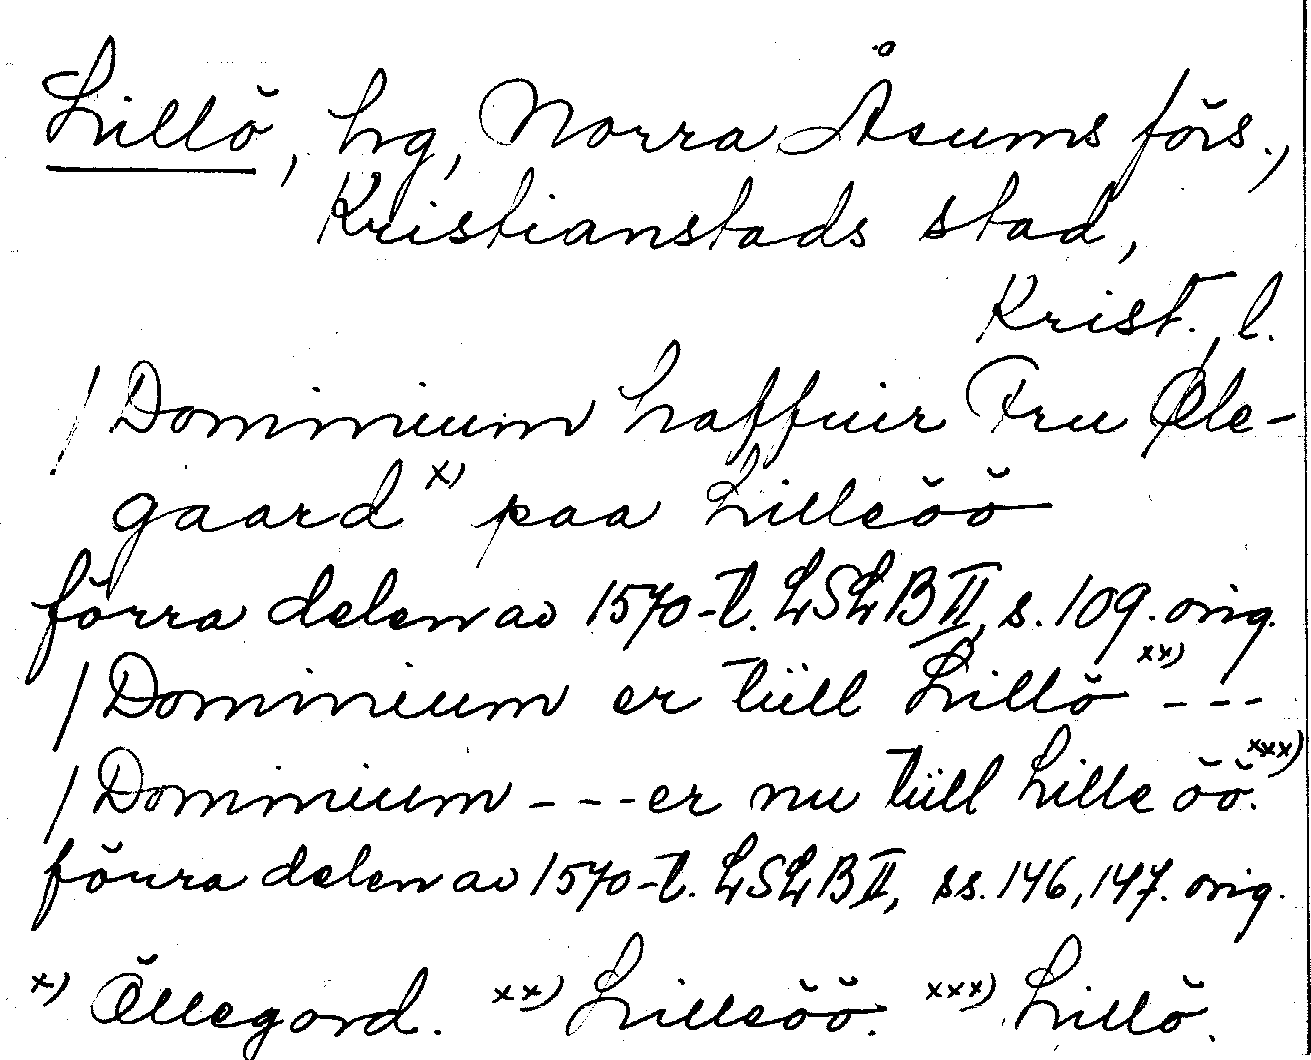 Lillö, hg, Norra Åsums förs.,
Kristianstads stad,
Krist. l.
/ Dominium haffuir Fru Øle-
gaard x) paa Lilleöö
förra delen av 1570-t. LSLB II, s. 109. orig.
/ Dominium er tiill Lillö xx) ---
/ Dominium --- er nu tiill Lille öö. xxx)
förra delen av 1570-t. LSLB II, ss. 146, 147. orig.
x) Öllegord. xx) Lilleöö. xxx) Lillö.